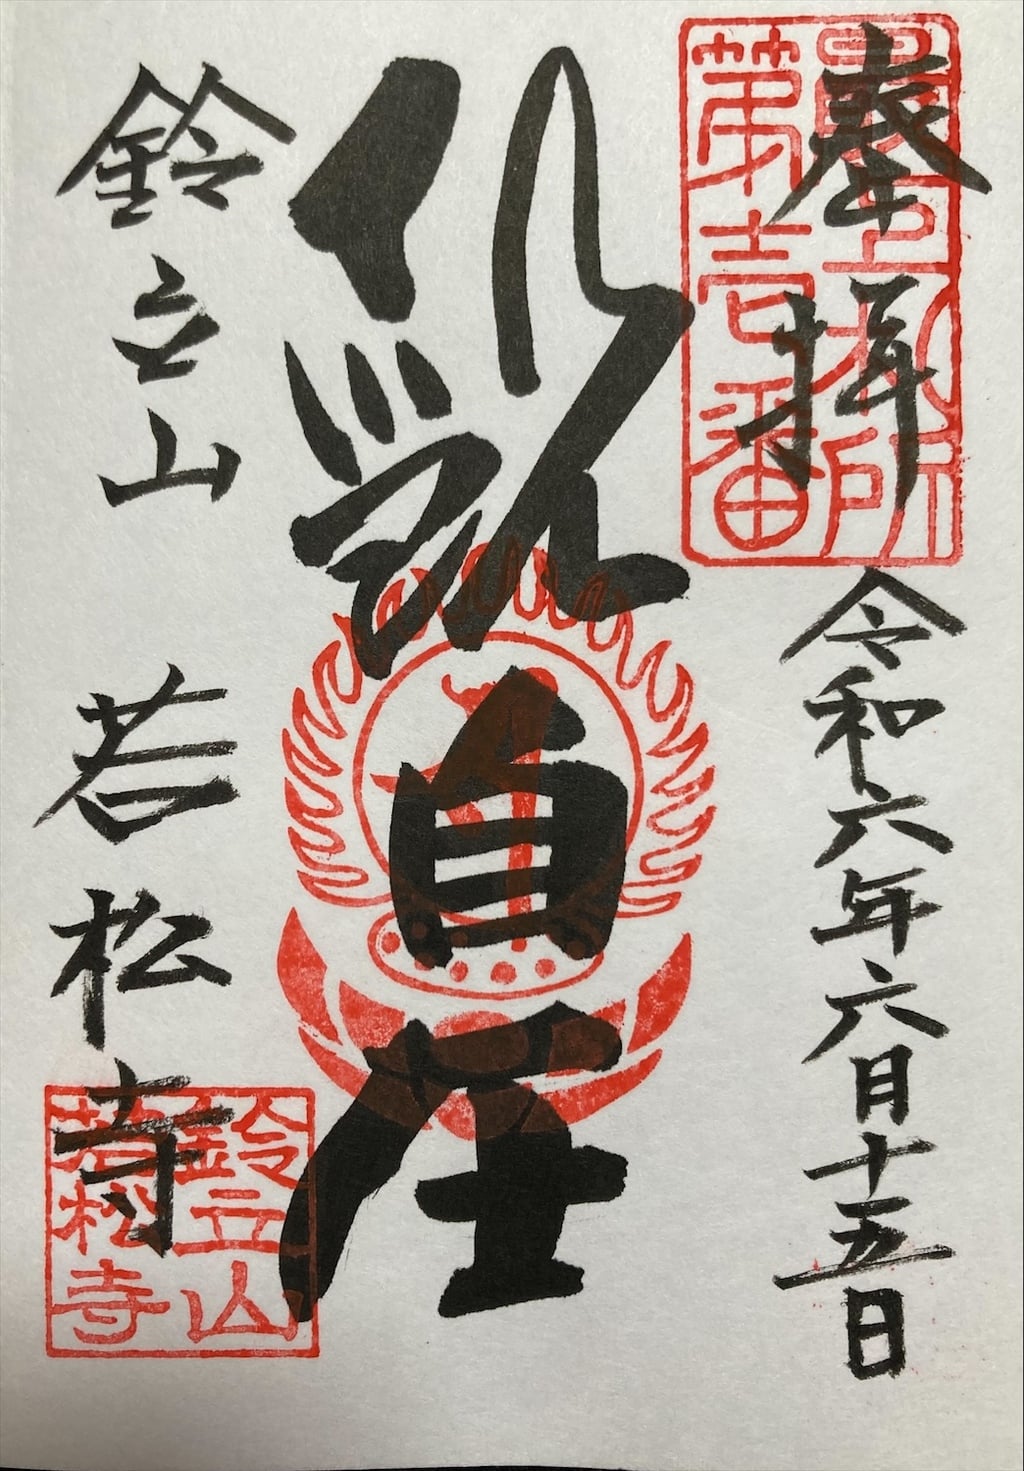 最上札所
第壱番
奉拝
令和六年六月十五日
観自在
鈴立山 若松寺
鈴立山
若松寺